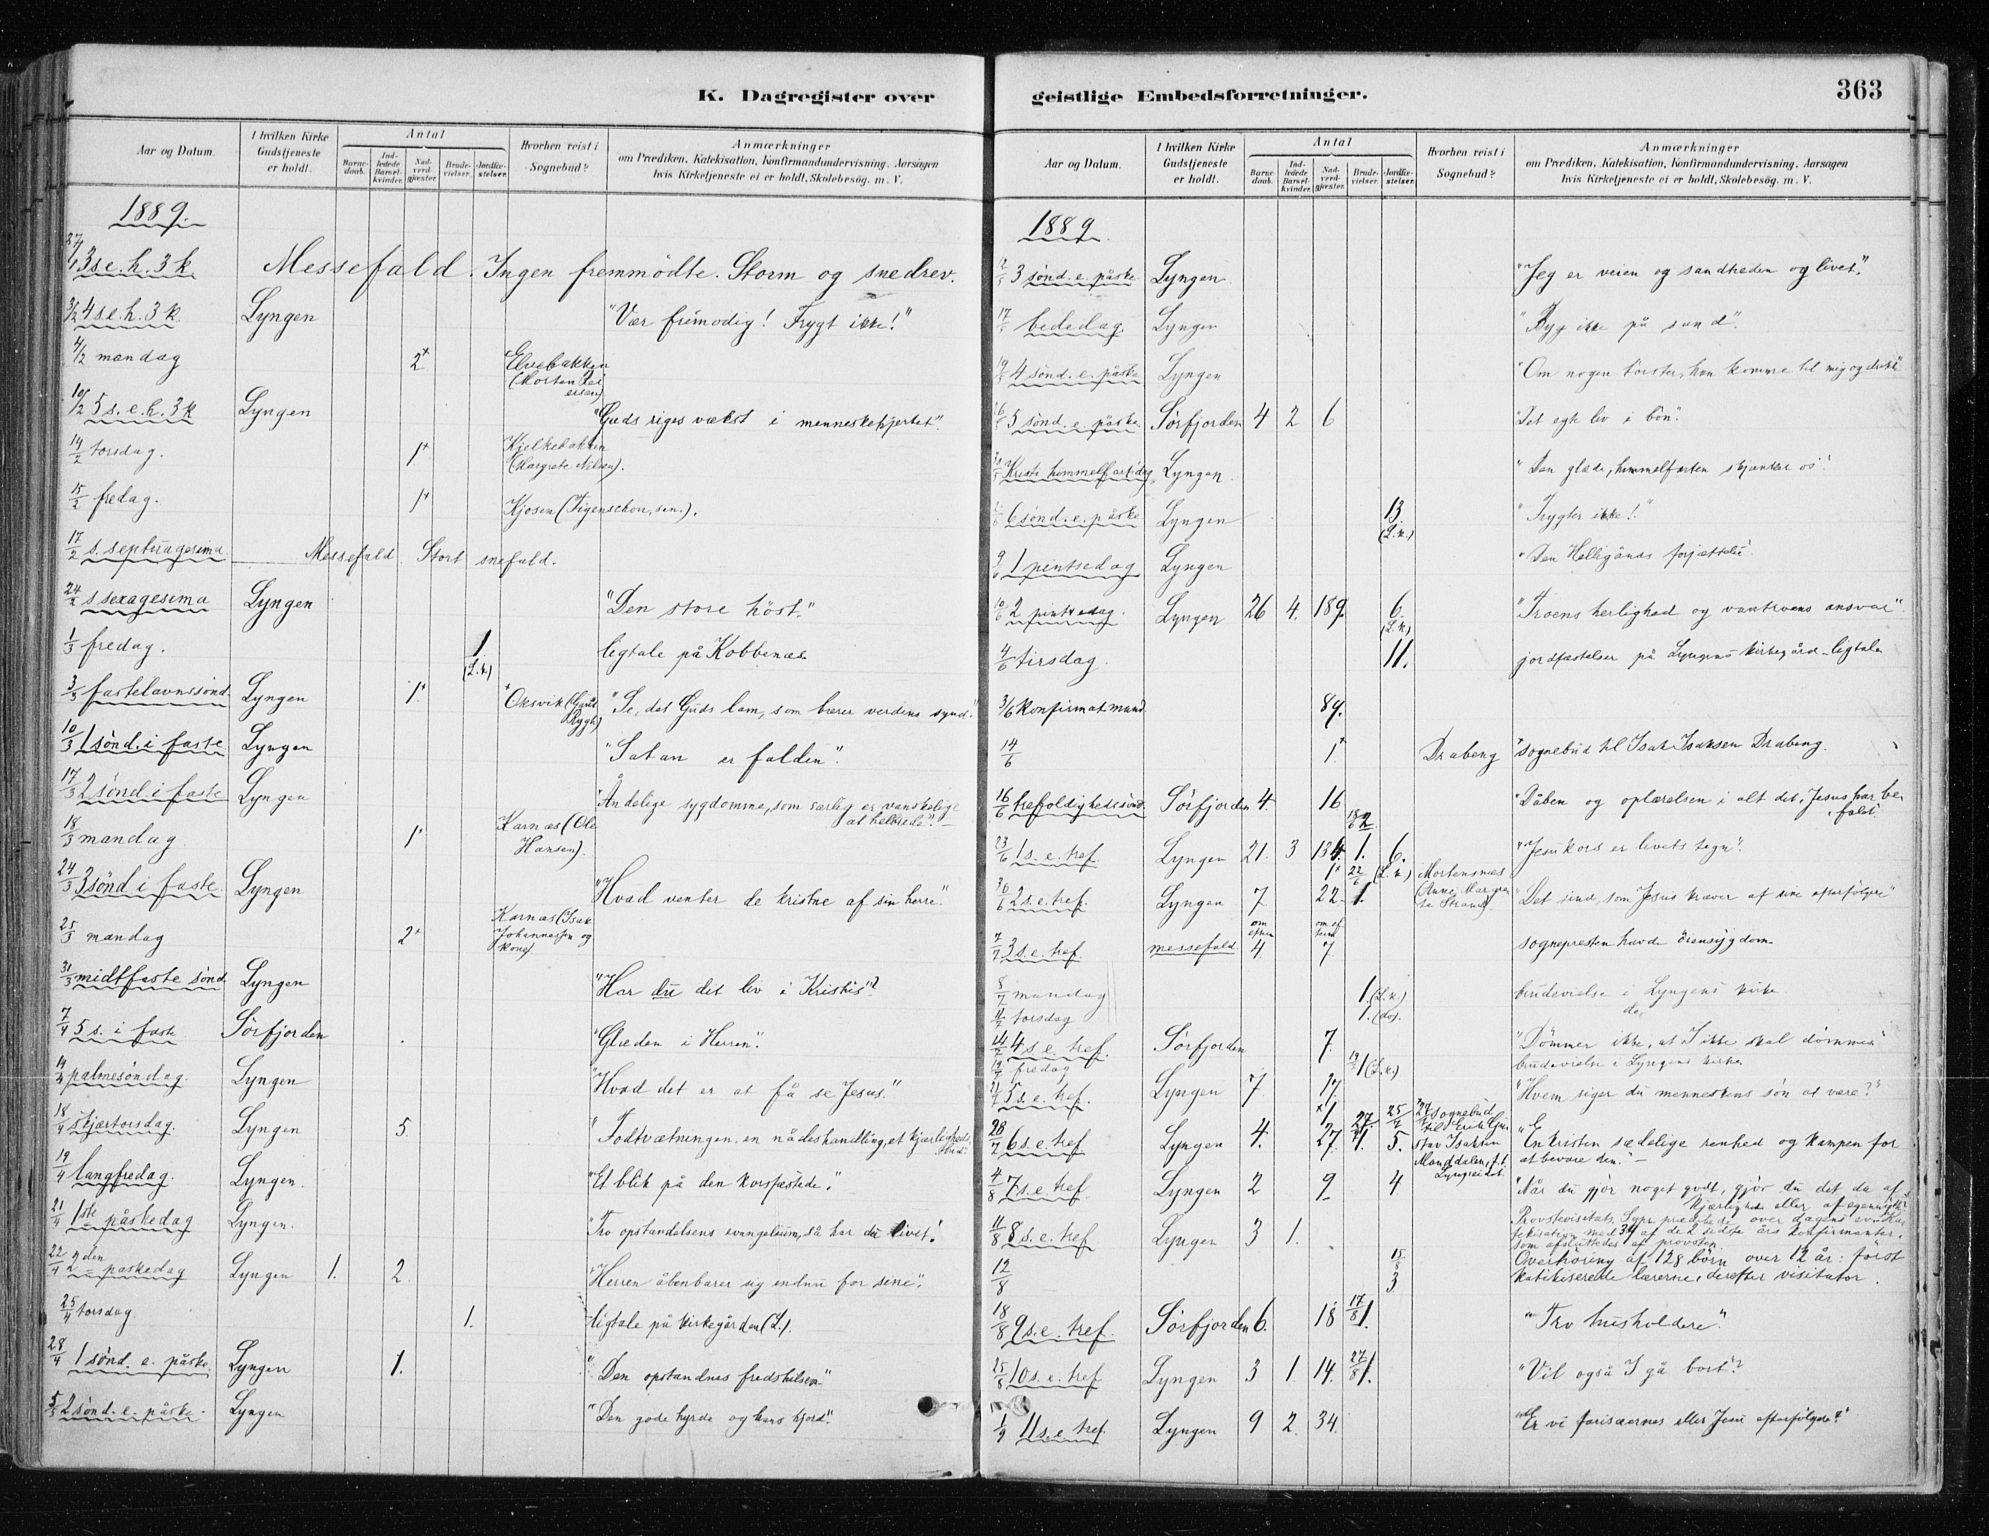 K. Dagregister over
Aar og Datum.
I hvilken Kirke Gudstjeneste er holdt.
Antal
Barnedaab.
Indledede Barselkvinder.
Nadverdgjæster.
Brudevielser.
Jordfæstelser.
Hvorhen reist i Sognebud?
Anmærkninger
om Prædiken, Katekisation, Konfirmandundervisning, Aarsagen
hvis Kirketjeneste ei er holdt, Skolebesøg. m. V.
1889.
27/1 3 s.e.h. 3 k. Messefald. Ingen fremmødte. Storm og snedrev.
3/2 4 s.e.h. 3 k. Lyngen "Vær frimodig! Frygt ikke!"
4/2 mandag 2+ Elvebakken (Morten
10/2 5 s.e.h. 3 k Lyngen "Guds riges vækst i menneskehjertet"
14/2 torsdag. 1+ Kjelkebakken (Margrete Nilsen).
15/2 fredag. 1+ Kjosen (Figenschou, sen.).
17/2 s. septuagesima Messefald. Stort snefald.
24/2 s. sexagesima Lyngen "Den store høst."
1/3 fredag. 1. (L.k.) ligtale på Kobbenæs
3/3 fastelavnssønd. Lyngen 1+ +Oksvik "Se, det Guds lam, som bærer verdens synd."
10/3 1 sønd. i faste Lyngen "Satan er falden".
17/3 2 sønd. i faste Lyngen "Åndelige sygdomme, som særlig er vanskelige at helbrede".
18/3 mandag 1+ Karnæs (Ole Hansen).
24/3 3 sønd i faste. Lyngen "Hvad venter de kristne af sin herre."
25/3 mandag 2+ Karnæs (Isak Johannessen og kone)
31/3 midtfaste sønd. Lyngen "Har du det liv i Kristus"?
7/4 5 s. i faste Sørfjorden "Glæden i Herren".
14/4 palmesøndag. Lyngen "Hvad det er at få se Jesus."
18/4 skjærtorsdag. Lyngen 5. "Fodtvætningen en nådeshandling, et kjærligheds
19/4 langfredag. Lyngen. "Et blik på den korsfæstede".
21/4 1ste påskedag Lyngen. "Tro opstandelsens evangelium, så har du livet!
22/4 2den påskedag Lyngen 1. 2. "Herren åbenbarer sig endnu for sine".
25/4 torsdag. 1. ligtale på kirkegården (L.).
28/4 1 sønd. e. påske Lyngen 1. "Den opstandnes fredshilsen"
5/5 2 sønd. e. påske. Lyngen "Den gode hyrde og hans hjord".
geistlige Embedsforretninger.
363
Aar og Datum.
I hvilken Kirke Gudstjeneste er holdt.
Antal
Barnedaab.
Indledede Barselkvinder.
Nadverdgjæster.
Brudevielser.
Jordfæstelser.
Hvorhen reist i Sognebud?
Anmærkninger
om Prædiken, Katekisation, Konfirmandundervisning, Aarsagen
hvis Kirketjeneste ei er holdt, Skolebesøg. m. V.
1889.
12/5 3 sønd. e. påske Lyngen "Jeg er veien og sandheden og livet".
17/5 bededag. Lyngen "Byg ikke på sand".
19/5 4 sønd. e. påske Lyngen "Om nogen tørster, han komme til mig og drikke"
26/5 5 sønd. e. påske Sørfjorden 4 2 6 "Det egte liv i bøn".
30/5 Kristi himmelfartsdag Lyngen. "Den glæde, himmelfarten skjænker os".
2/6 6 sønd. e. påske Lyngen 13. (L.k.) "Frygter ikke!"
9/6 1 pintsedag Lyngen "Den Helligånds forjættelse"
10/6 2 pintsedag. Lyngen 26 4. 189. 6. (L.k.) "Troens herlighed og vantroens ansvar".
4/6 tirsdag. 11. jordfæstelser på Lyngens kirkegård - ligtale
3/6 konfirmatmand. 89.
14/6 1+ Drabeng +sognebud til Isak Isaksen Drabeng.
16/6 trefoldighedssønd. Sørfjorden 4. 16 18/6 2. "Dåben og oplærelsen i alt det, Jesus har befalet"
23/6 1 s.e. tref. Lyngen 21. 3 134. 1. 6. (L.k.) "Jesu kors er livets tegn".
30/6 2 s.e. tref. Lyngen 7 1+ 22. 22/6 1. Mortensnæs (Anne Margrete Strand). "Det sind, som Jesus kræver af sine efterfølgere"
7/7 3 s.e. tref. messefald. 4. 7 sognepresten havde ørensygdom
8/7 mandag 1. (L.k.) brudevielse i Lyngens kirke
11/7 torsdag 1. (do). do.
14/7 4 s.e. tref. Sørfjorden 7. "Dømmer ikke, at I ikke skal dømmes"
19/7 fredag 19/7 1 (L.k.) brudevielse i Lyngens kirke
21/7 5 s.e. tref. Lyngen 7. 17. "Hvem siger du menneskens søn at være?"
28/7 6 s.e. tref Lyngen 4. +1 27. 27/7 1. 25/7 5. sognebud til Erik Isaksen Manddalen, p.t. Lyngseidet. "En kristen sædelige renhed og kampen for at bevare den."
4/8 7 s.e. tref. Lyngen 2 9 4 "Når du gjør noget godt, gjør du det da af kjærlighed eller af egennytte"
11/8 8 s.e. tref Lyngen 3 1. Provstevisitats. Sgpr. prædikede over dagens ev. Katekisation med 34 af de 2 sidste års konfirmanter, som afsluttedes af provsten.
12/8 15/8 3 Overhøring af 128 børn over 12 år: først katekiserede lærerne, derefter visitator.
18/8 9 s.e. tref. Sørfjorden 6. 18 17/8 1. "Tro husholdere".
25/8 10 s.e. tref Lyngen 3 1. 14. 27/8 1. "Vil også I gå bort"?
1/9 11 s.e. tref. Lyngen 9 2. 34. "Er vi farisæernes eller Jesu efterfølgere?"